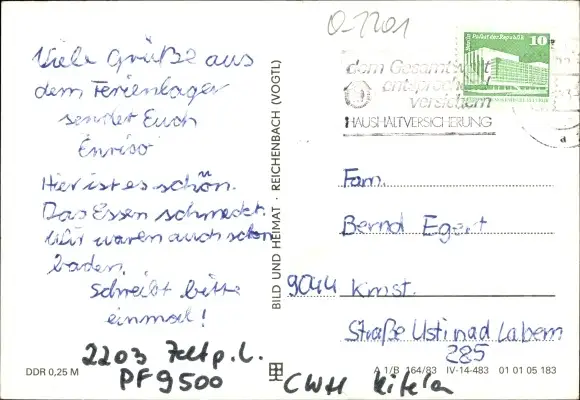 Viele Grüße aus
dem Ferienlager
sendet Euch
Enrico
Hier ist es schön.
Das Essen schmeckt.
Wir waren auch schon
baden.
Schreibt bitte
einmal!
2203
PF 9500
DDR 0,25 M
BILD UND HEIMAT · REICHENBACH (VOGTL)
O-2201
Palast der Republik
10
dem Gesamtwert
entsprechend
versichern
HAUSHALTVERSICHERUNG
Fam.
Bernd Egert
9044 K.-M.-St.
Straße Usti nad Labem
285
A 1/B 164/83 IV-14-483 01 01 05 183
CWH